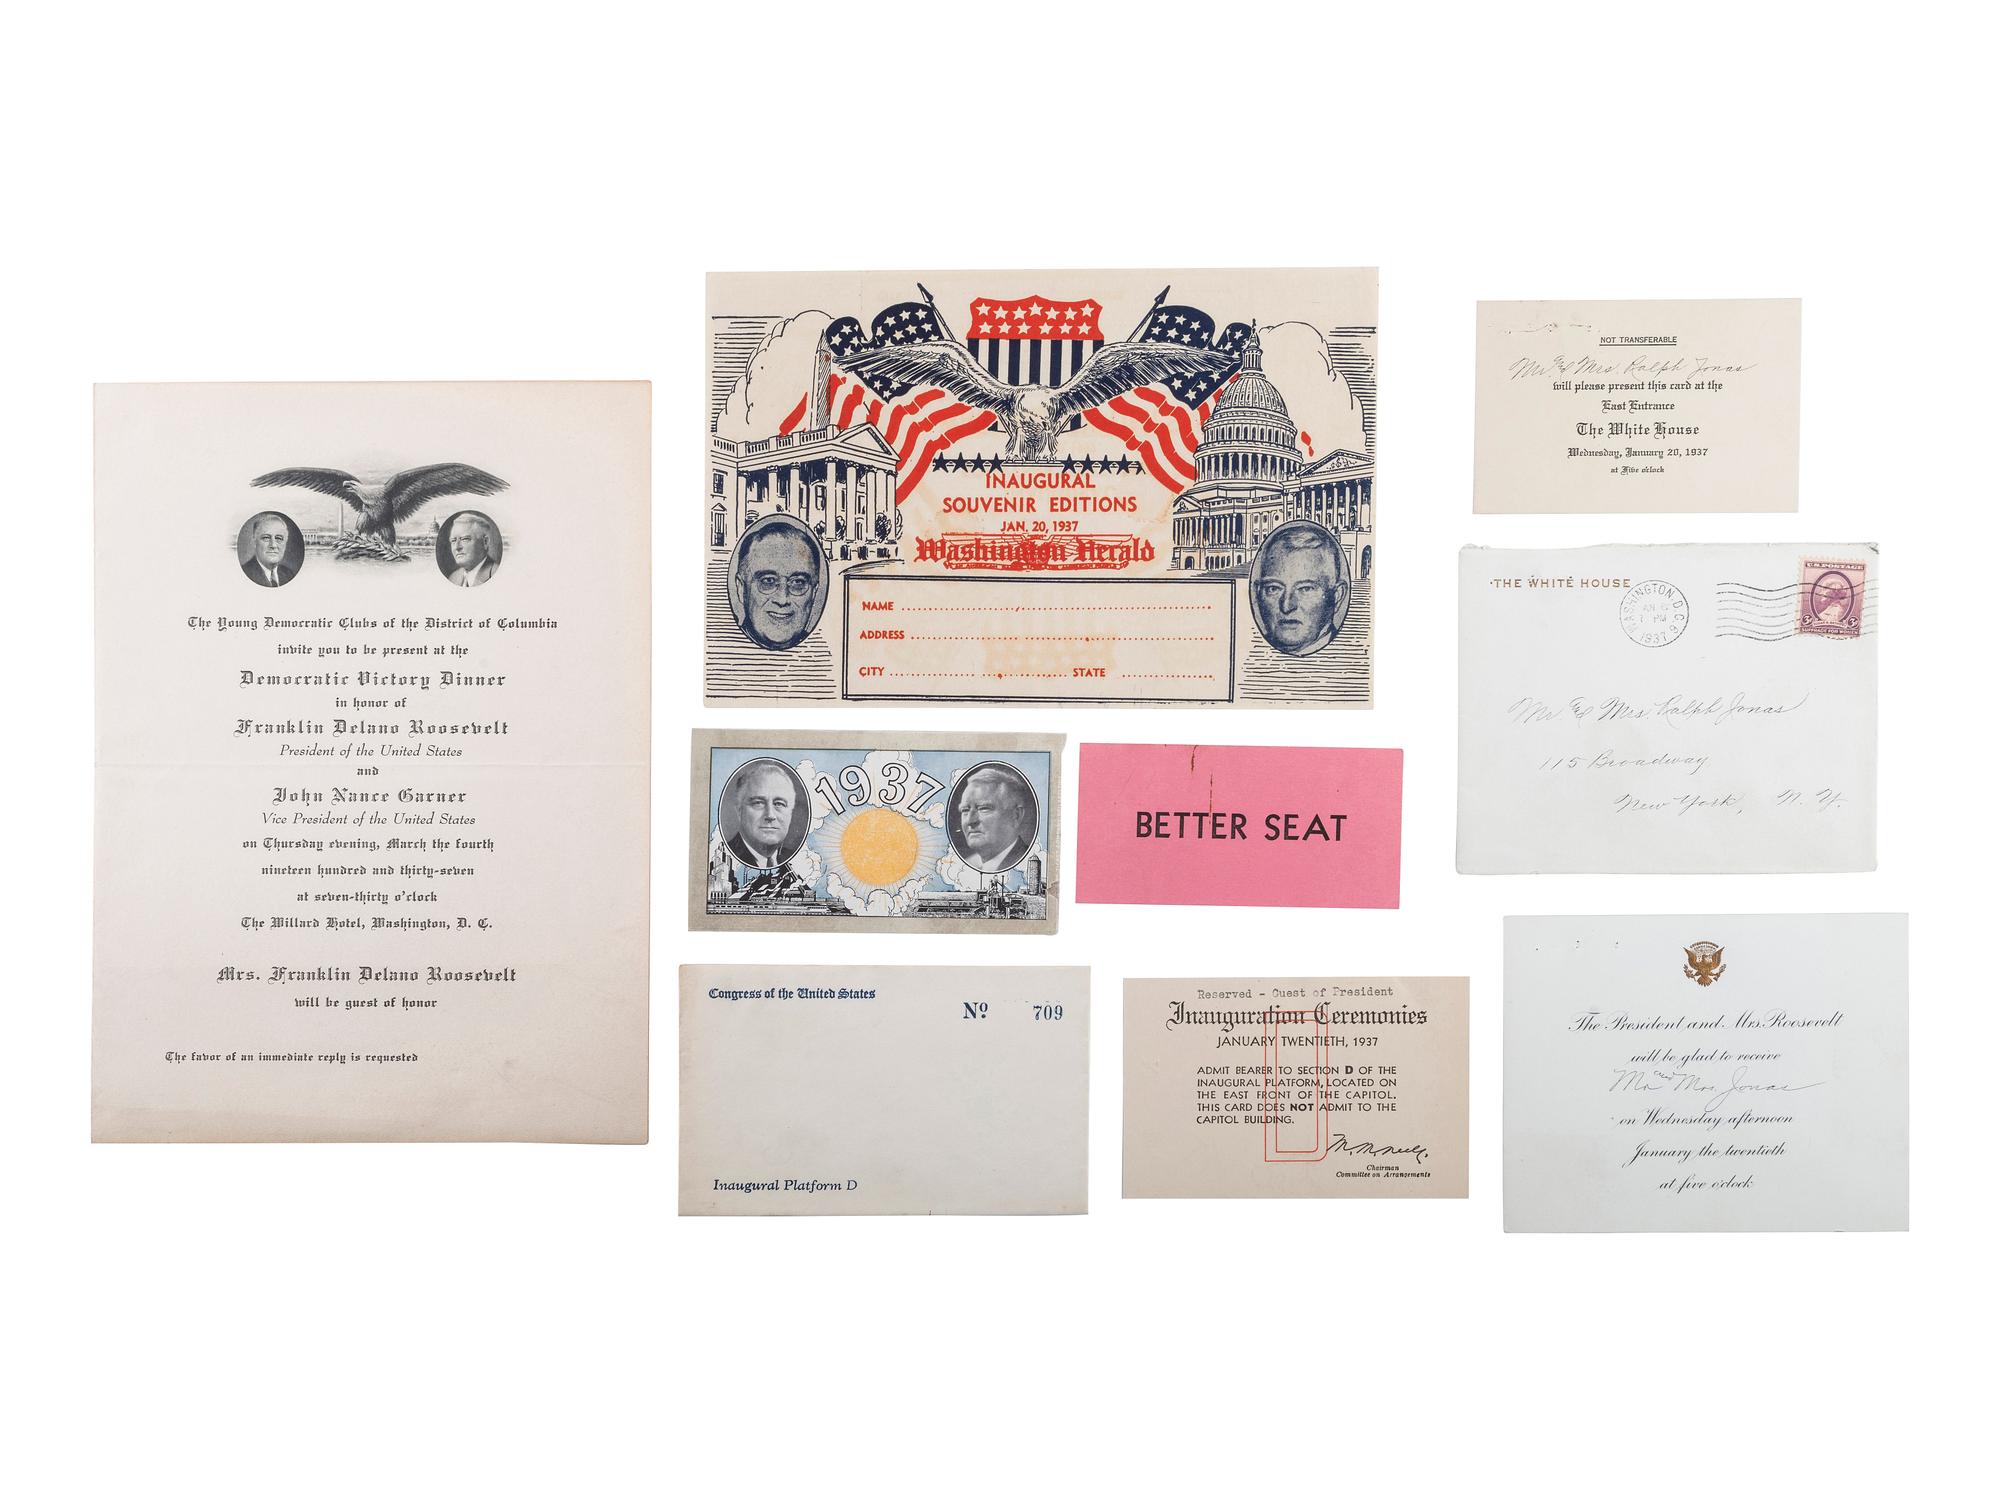 The Young Democratic Clubs of the District of Columbia
invite you to be present at the
Democratic Victory Dinner
in honor of
Franklin Delano Roosevelt
President of the United States
and
John Nance Garner
Vice President of the United States
on Thursday evening, March the fourth
nineteen hundred and thirty-seven
at seven-thirty o'clock
The Willard Hotel, Washington, D. C.
Mrs. Franklin Delano Roosevelt
will be guest of honor
The favor of an immediate reply is requested
INAUGURAL
SOUVENIR EDITIONS
JAN. 20, 1937
Washington Herald
NAME
ADDRESS
CITY STATE
1937
BETTER SEAT
Congress of the United States
No 709
Inaugural Platform D
Reserved - Guest of President
Inauguration Ceremonies
JANUARY TWENTIETH, 1937
ADMIT BEARER TO SECTION D OF THE
INAUGURAL PLATFORM, LOCATED ON
THE EAST FRONT OF THE CAPITOL.
THIS CARD DOES NOT ADMIT TO THE
CAPITOL BUILDING.
D
Chairman
Committee on Arrangements
NOT TRANSFERABLE
Mr. & Mrs. Ralph Jonas
will please present this card at the
East Entrance
The White House
Wednesday, January 20, 1937
at Five o'clock
THE WHITE HOUSE
WASHINGTON, D.C.
PM
1937
U.S. POSTAGE
3¢ 3¢
SUFFRAGE FOR WOMEN
Mr. & Mrs. Ralph Jonas
115 Broadway
New York, N. Y.
The President and Mrs. Roosevelt
will be glad to receive
Mr and Mrs. Jonas
on Wednesday afternoon
January the twentieth
at five o'clock